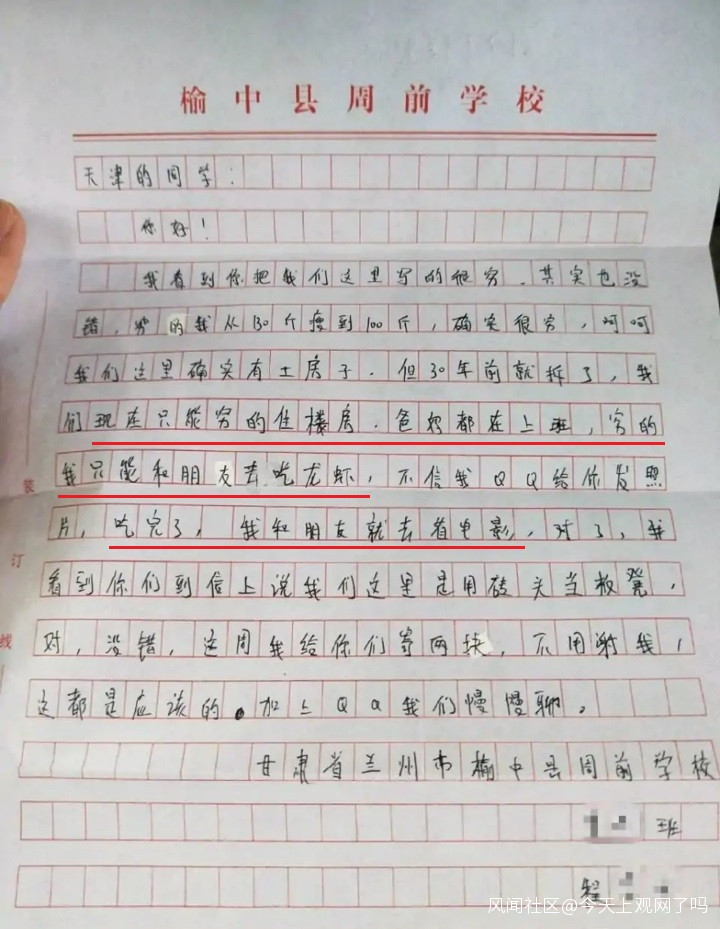 榆中县周前学校
天津的同学:
你好!
我看到你把我们这里写的很穷.其实也没
错,穷的我从130斤瘦到100斤,确实很穷,呵呵
我们这里确实有土房子.但30年前就拆了,我
们现在只能穷的住楼房.爸妈都在上班,穷的
我只能和朋友去吃龙虾,不信我QQ给你发照
片,吃完了,我和朋友就去看电影,对了,我
看到你们到信上说我们这里是用砖头当板凳,
对,没错,这周我给你们寄两块,不用谢我,
这都是应该的.加上QQ我们慢慢聊.
甘肃省兰州市榆中县周前学校
班
程
装
订
线
风闻社区@今天上观网了吗